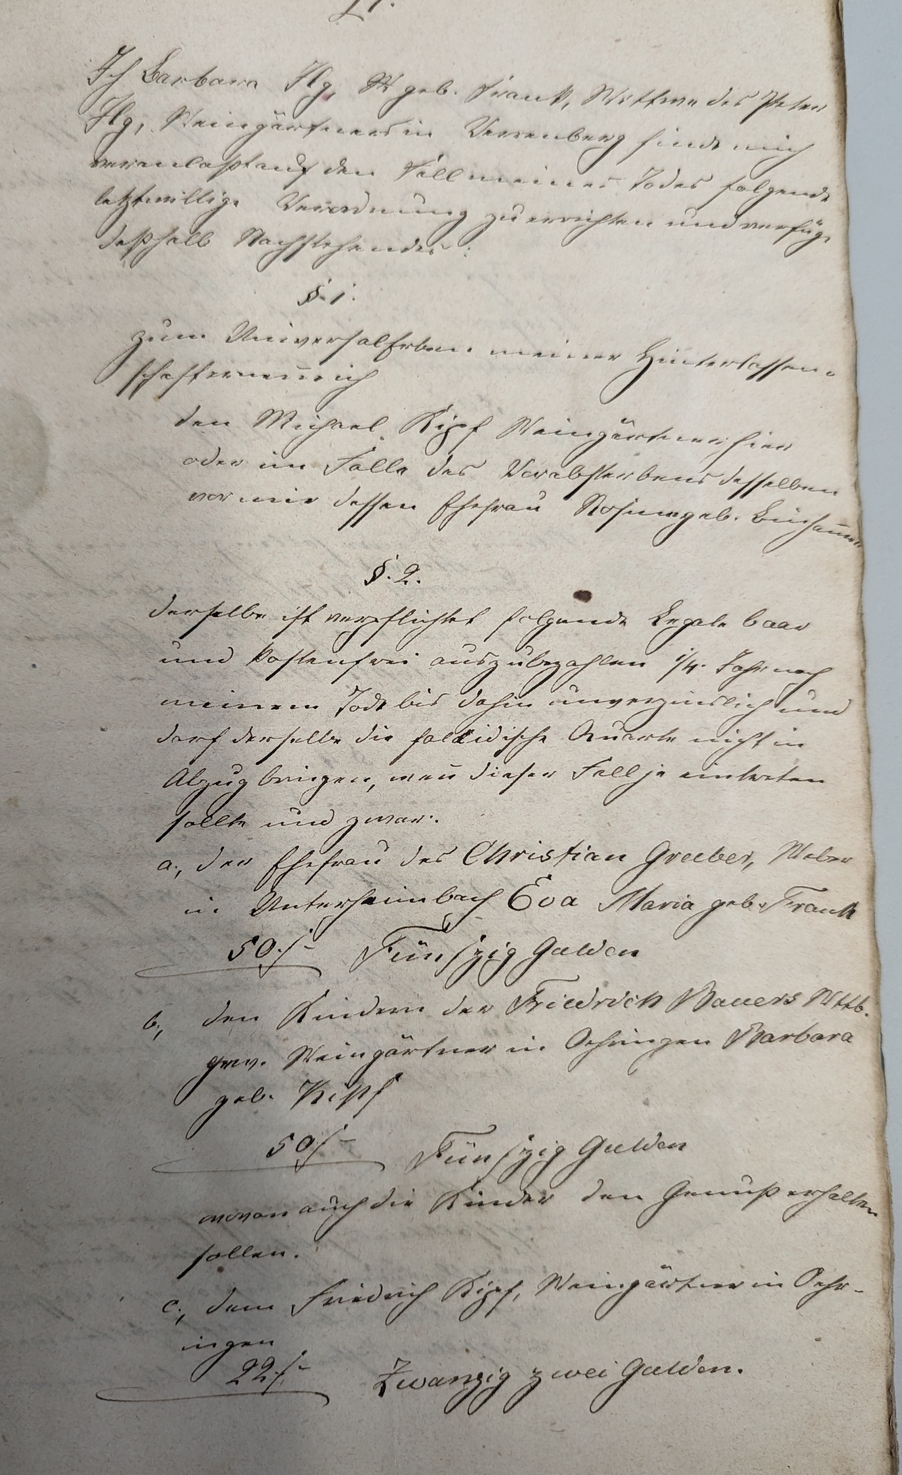 Ich Barbara Ilg, geb. Frank, Wittwe des Peter
Ilg, Weingärtners in Verrenberg finde mich
veranlaßt auf den Fall meines Todes folgende
letztwillige Verordnung zu errichten und verfüge
deßhalb Nachstehendes:
§. 1.
Zum Universalerben meiner Hinterlassen-
schaft ernenne ich
den Michael Kipf Weingärtner hier
oder im Falle des Vorabsterbens desselben
vor mir dessen Ehefrau Rosine geb.
§. 2.
derselbe ist verpflichtet folgende Legate baar
und kostenfrei auszubezahlen 1/4. Jahr nach
meinem Tode bis dahin unverzinslich und
darf derselbe die falcidische Quarte nicht in
Abzug bringen, wenn dieser Fall je eintreten
sollte und zwar:
a., der Ehefrau des Christian Greeber, Weber
in Unterheimbach Eva Maria geb. Frank
50 f. – Fünfzig Gulden
b., den Kindern der Friedrich Bauers Wttb.
gew. Weingärtner in Oehringen Barbara
geb. Kipf
50 f – Fünfzig Gulden
wovon auch die Kinder den Genuß erhalten
sollen.
c., dem Friedrich Kipf, Weingärtner in Oehr-
ingen
22 f. – Zwanzig zwei Gulden.